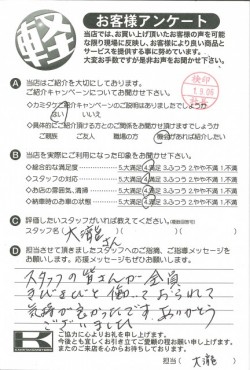 軽
お客様アンケート
当店では、お買い上げ頂いたお客様の声を可能
な限り現場に反映し、お客様により良い商品と
サービスを提供する事に努めています。
大変お手数ですが是非お声をお聞かせ下さい。
A 当店はご紹介を大切にしております。
ご紹介キャンペーンについてお聞かせ下さい。
検印
1.9.06
◆カミタケご紹介キャンペーンのご説明はありましたでしょうか
はい いいえ
◆具体的にご紹介頂ける方とのご関係をお聞かせ頂けますでしょうか
ご親族 ご友人 職場の方 機会があれば紹介したい
B 当店を実際にご利用になった印象をお聞かせ下さい。
◆総合的な満足度 5.大満足 4.満足 3.ふつう 2.やや不満 1.不満
◆スタッフの対応 5.大満足 4.満足 3.ふつう 2.やや不満 1.不満
◆お店の雰囲気、清掃 5.大満足 4.満足 3.ふつう 2.やや不満 1.不満
◆納車時のお車の状態 5.大満足 4.満足 3.ふつう 2.やや不満 1.不満
C 評価したいスタッフがいれば教えてください。(複数回答可)
スタッフ名( 大瀧さん )
D 担当させて頂きましたスタッフへのご感想、ご指導メッセージを
お願いします。応援メッセージもぜひお願いします。
スタッフの皆さんが全員
きびきびと働いておられて
気持が良かったです ありがとう
ございました
K
ご協力に心よりお礼を申し上げます。
今後とも宜しくお引き立てご愛顧の程お願い申し上げます。
またのご来店を心からお待ちしております。
担当( 大瀧 )